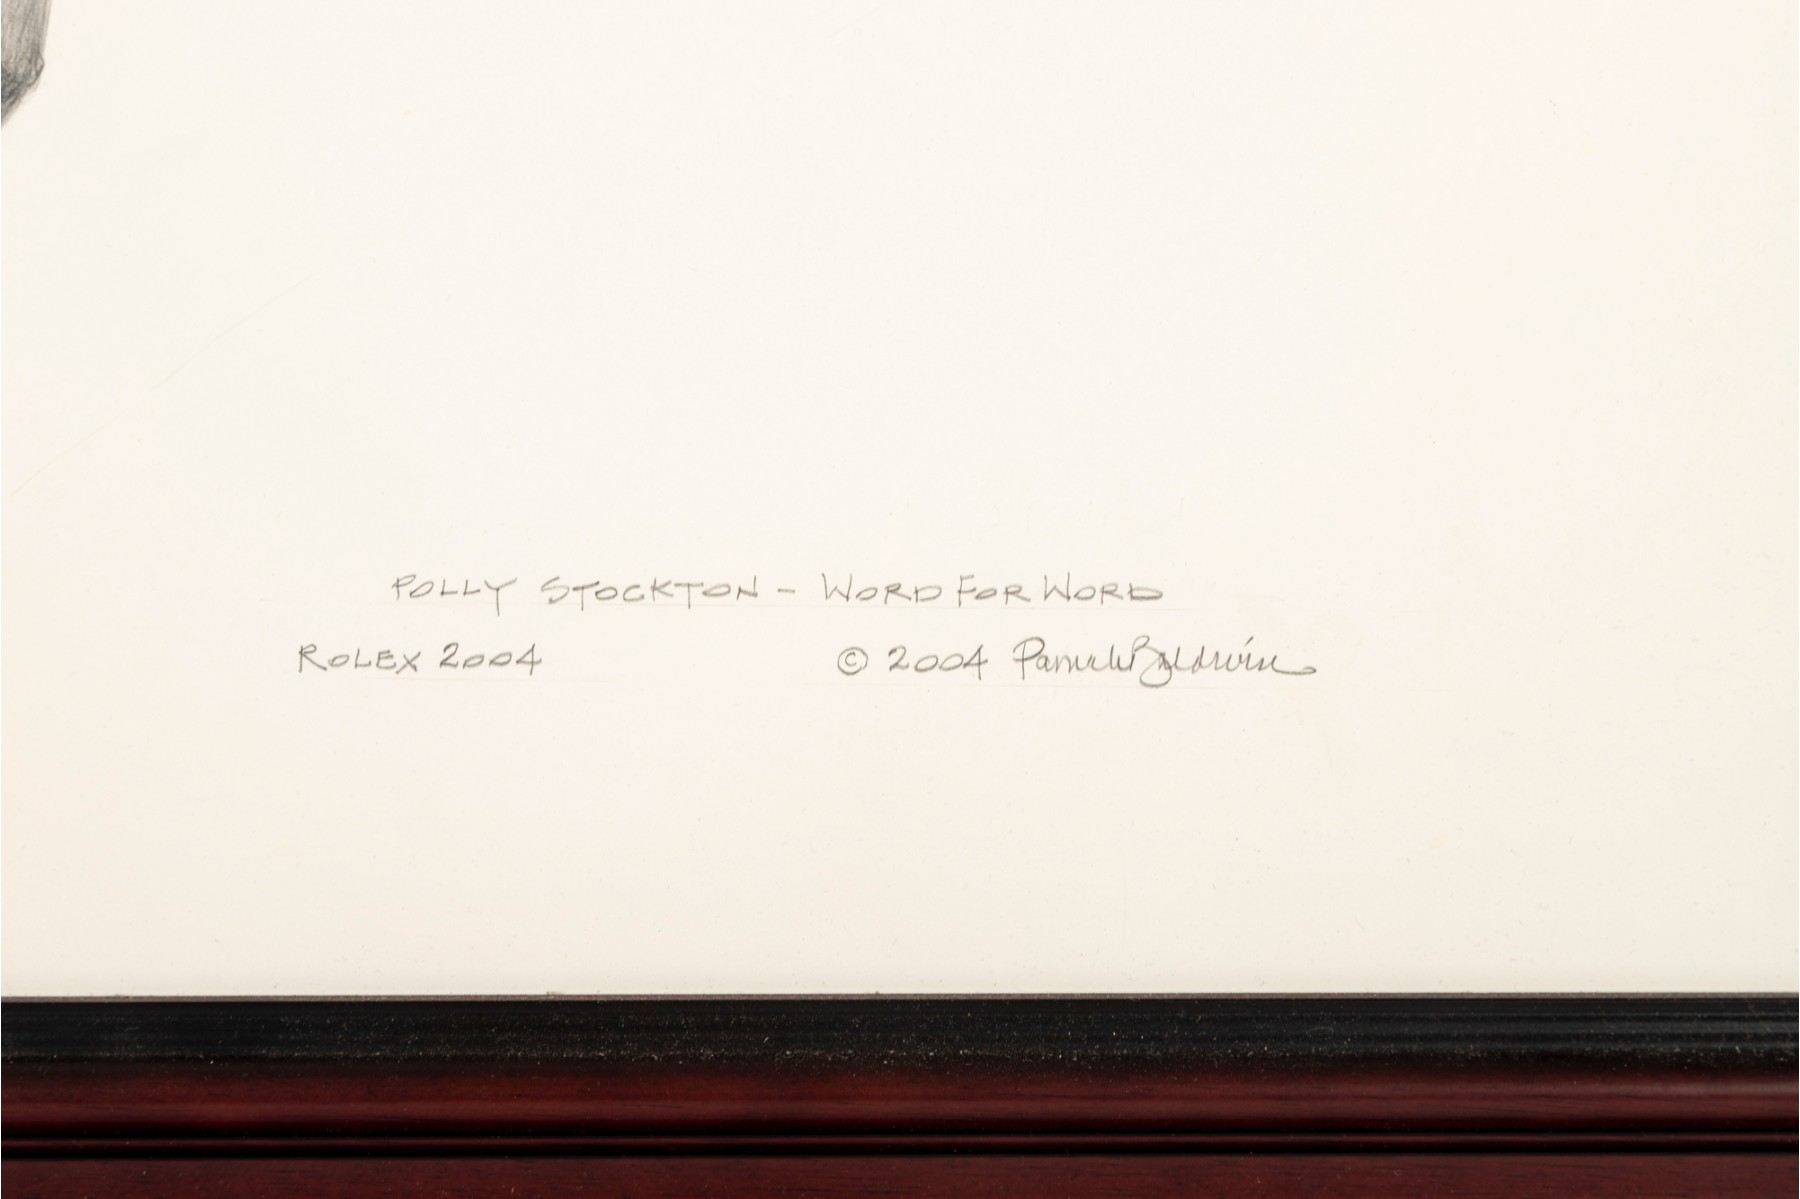 POLLY STOCKTON - WORD FOR WORD
ROLEX 2004 © 2004 Pamela Baldwin